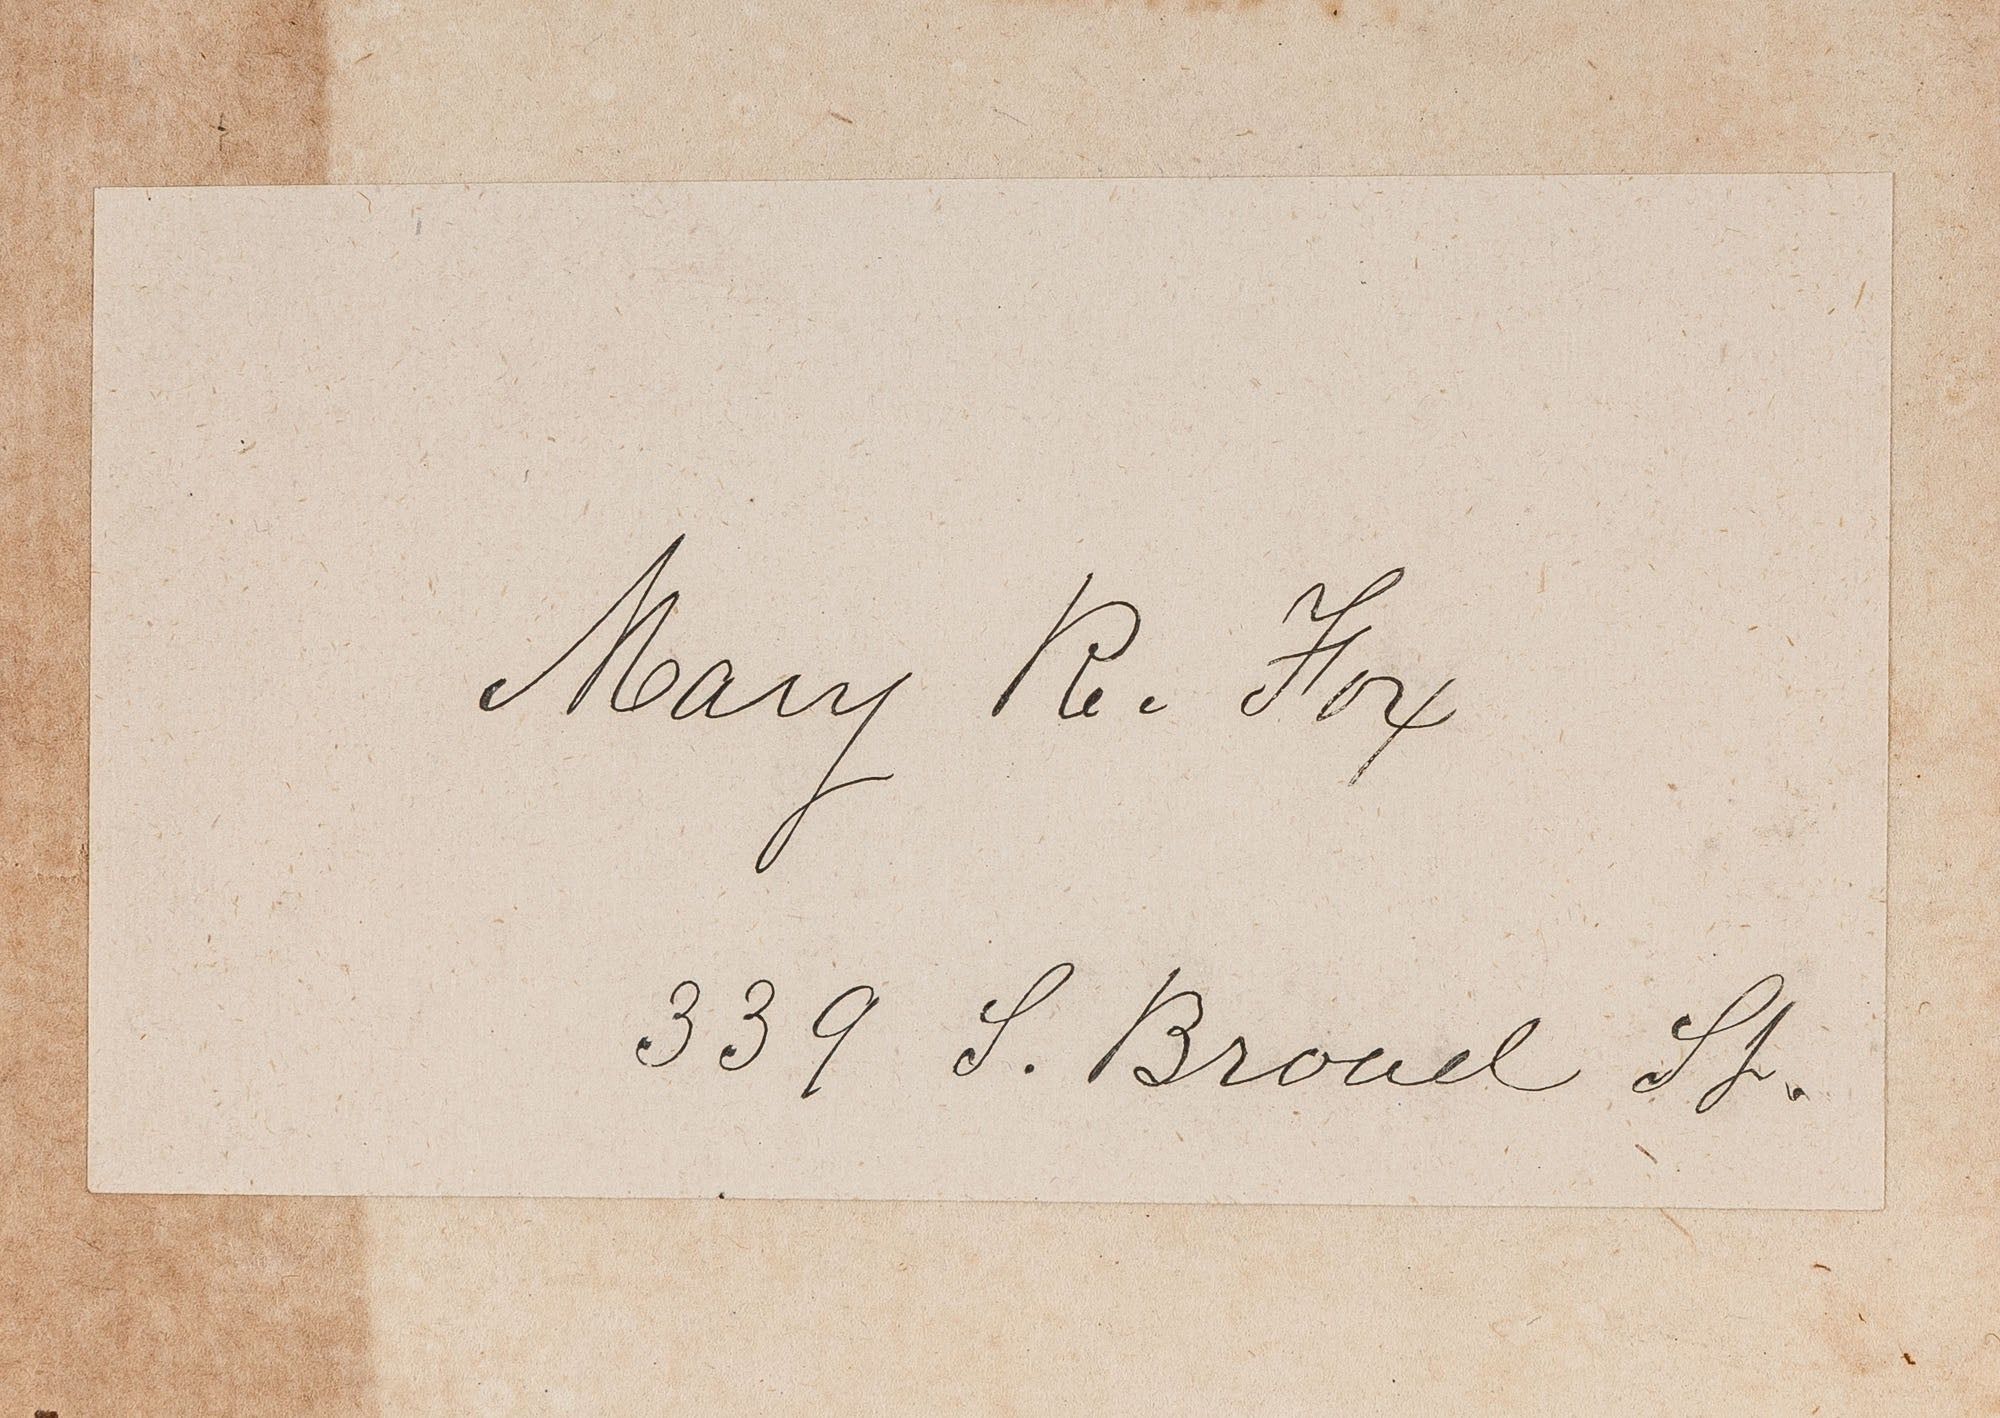 Mary R. Fox
339 S. Broad St.